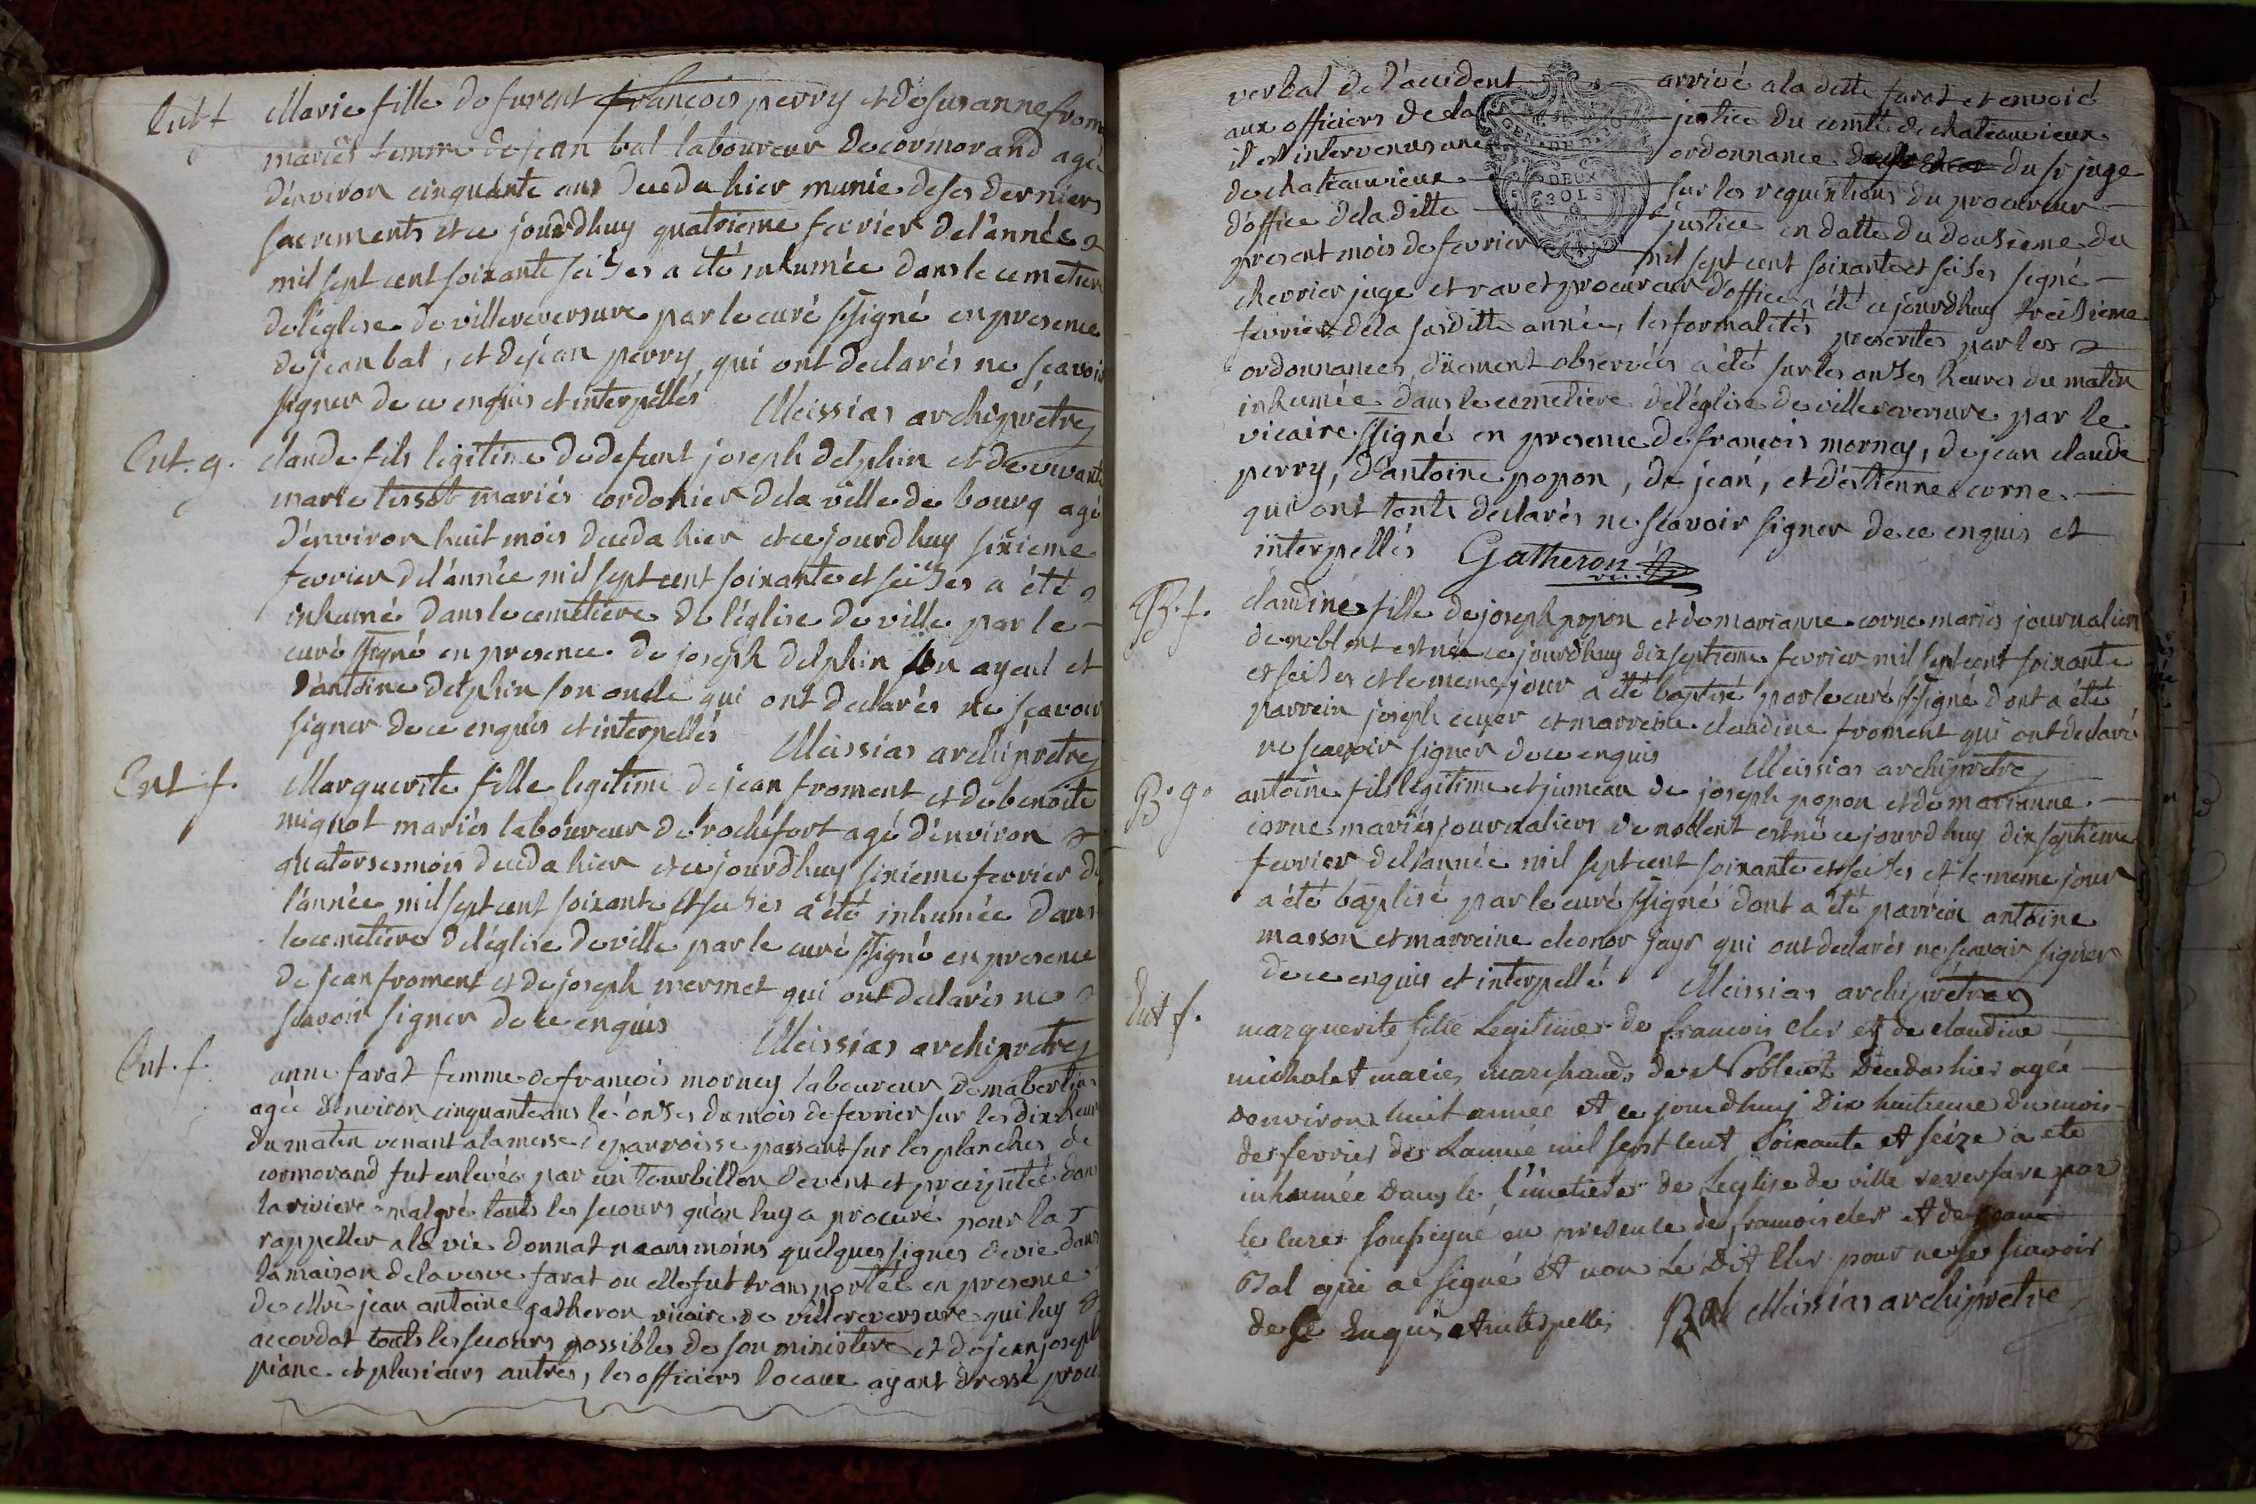 Ent f Marie fille de furent françois perry et de susanne from
mariés femme de jean bal laboureur de cormorand agée
d'environ cinquante ans deceda hier munie de ses derniers
sacrements et ce jourd'huy quatrieme fevrier de l'année
mil sept cent soixante seises a été inhumée dans le cemetiere
de l'église de villereversure par le curé ssigné en presence
de jean bal, et de jean perry, qui ont declarés ne sçavoir
signer de ce enquis et interpellés Meissias archiprêtre
Ent. g. claude fils legitime de defunt joseph delphin et de vivante
marie tissot mariés cordonier de la ville de bourg agé
d'environ huit mois deceda hier et ce jourd'huy sixieme
fevrier de l'année mil sept cent soixante et seises a été
inhumé dans le cemetiere de l'église de ville par le
curé ssigné en presence de joseph delphin son ayeul et
d'antoine delphin son oncle qui ont declarés ne sçavoir
signer de ce enquis et interpellés Meissias archiprêtre
Ent f. Marguerite fille legitime de jean froment et de benoite
mignot mariés laboureur de rochefort agé d'environ
quatorses mois deceda hier et ce jourd'huy sixieme fevrier de
l'année mil sept cent soixante et seises a été inhumée dans
le cemetiere de l'église de ville par le curé ssigné en presence
de jean froment et de joseph mermet qui ont declarés ne
sçavoir signer de ce enquis Meissias archiprêtre
Ent. f. anne farat femme de françois morney laboureur de mabertin
agée d'environ cinquante ans le onses du mois de fevrier sur les dix heur
du matin venant a la messe de parroisse passant sur les planches de
cormorand fut enlevée par un tourbillon de vent et precipitée dans
la riviere malgré touts les secours qu'on luy a procuré pour la
rappeller a la vie donnat neansmoins quelques signes de vie dans
la maison de la vesve farat ou elle fut transportée en presence
de Mre jean antoine gatheron vicaire de villereversure qui luy
accordat touts les secours possibles de son ministere et de jean joseph
pianc et plusieurs autres, les officiers locaux ayant dressé proc
verbal de l'accident arrivé a la ditte farat et envoié
aux officiers de la justice du comté de chateauvieux
il est intervenus une ordonnance du sr juge
de chateauvieux sur les requisitions du procureur
d'office de la ditte justice en datte du dousieme du
present mois de fevrier mil sept cent soixante et seises signé
chevrier juge et ravet procureur d'office a été ce jourd'huy treisieme
fevrier de la susditte année, les formalités prescrites par les
ordonnances, düement observées a été sur les onses heures du matin
inhumée dans le cemetiere de l'église de villereversure par le
vicaire ssigné en presence de françois morney, de jean claude
perry, d'antoine popon, de jean, et d'estienne corne.
qui ont touts declarés ne sçavoir signer de ce enquis et
interpellés Gatheron vic.
B. f. claudine fille de joseph popon et de marianne corne mariés journalier
de noblent est née ce jourd'huy dix septieme fevrier mil sept cent soixante
et seises et le meme jour a été baptisé par le curé ssigné dont a été
parrein joseph cuer et marreine claudine froment qui ont declaré
ne sçavoir signer de ce enquis Meissias archiprêtre
B. g. antoine fils legitime et jumeau de joseph popon et de marianne
corne mariés journaliers de noblent est né ce jourd'huy dix septieme
fevrier de l'année mil sept cent soixante et seises et le meme jour
a été baptisé par le curé ssigné dont a été parrein antoine
masson et marreine eleonor jayr qui ont declarés ne sçavoir signer
de ce enquis et interpellé Meissias archiprêtre
Ent f. marguerite fille Legitime de francois cler et de claudine
micholet mariés marchands de Noblent deceda hier agée
denviron huit année et ce jourdhuy Dix huitieme du mois
de fevrier de Lannée mil sept cent soixante et seize a été
inhumée dans le Cimetiere de Leglise de ville reversure par
le curé soussigné en presence de francois cler et de jean
Bal qui a signé et non Le Dit Cler pour ne le scavoir
de ce Enquis et interpellés Bal Meissias archiprêtre
GEN. DE DIJON
DEUX
SOLS